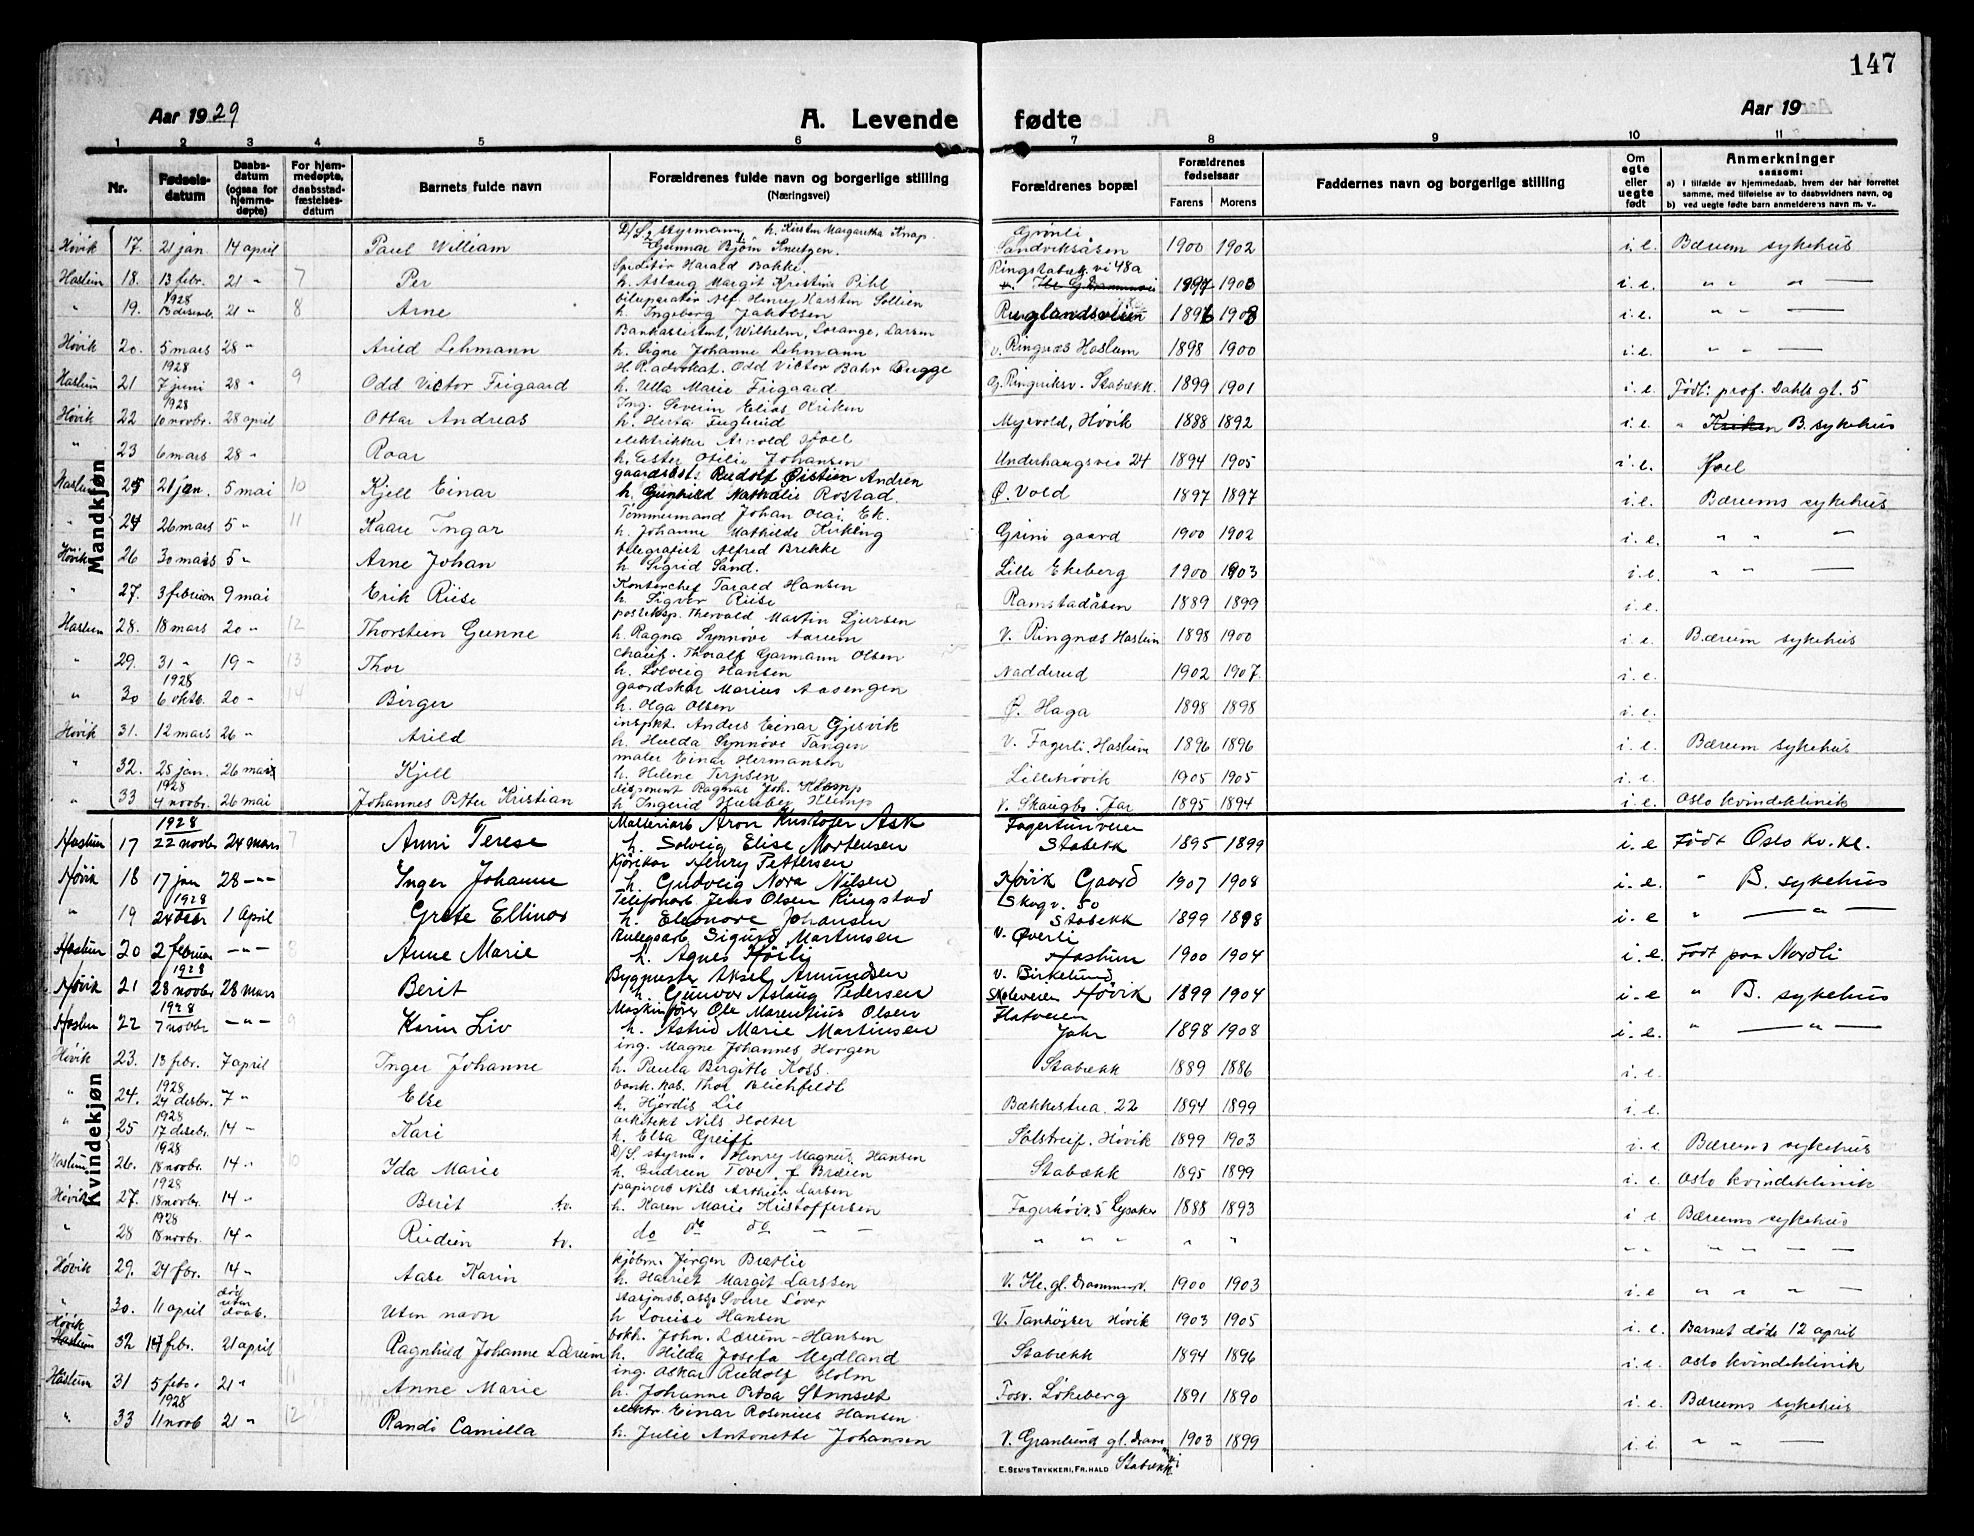 147
Aar 1929
A. Levende fødte
Aar 19
1 2 3 4 5 6 7 8 9 10 11
Nr. Fødselsdatum Daabsdatum (ogsaa for hjemmedøpte) For hjemmedøpte, daabsstadfæstelsesdatum Barnets fulde navn Forældrenes fulde navn og borgerlige stilling (Næringsvei) Forældrenes bopæl Forældrenes fødselsaar Farens Morens Faddernes navn og borgerlige stilling Om egte eller uegte født Anmerkninger saasom: a) I tilfælde av hjemmedaab, hvem der har forrettet samme, med tilføielse av to daabsvidners navn, og b) ved uegte fødte barn anmelderens navn m. v..
Mandkjøn
Høvik 17. 21 jan. 14 april Paul William D/S styrmann Gunnar Bjørn Knutzen. h. Kirsten Margaretha Knap. Grønli Sandviksåsen 1900 1902 i.e. Bærum sykehus
Haslum 18. 13 febr. 21 " 7 Per Speditør Harald Bakke. h. Aslaug Margit Kristine Pihl Ringstabæk vi 48a 1897 1903 i.e. " " " —
" 19. 1928 13 desemb. 21 " 8 Arne bilreparatør Alf Henry Karsten Sollien h. Ingeborg Jakobsen Ringlandsveien 1896 1908 i.e. " " —
Høvik 20. 5 mars 28 " Arild Lehmann Bankassistent, Wilhelm, Lorange, Larsen h. Signe Johanne Lehmann v. Ringnæs Haslum 1898 1900 i.e. " " —
Haslum 21 1928 7 juni 28 " 9 Odd Victor Frigaard H.R.advokat. Odd Victor Bahr Bugge h. Ulla Marie Frigaard g. Ringriksv. Stabækk. 1899 1901 i.e. Født: prof. Dahls gt. 5
Høvik 22 1928 10 novbr. 28 april Ottar Andreas Ing. Severin Elias Kriken h. Herta Fuglerud Myrvold, Høvik 1888 1892 i.e. " Kriken B. sykehus
" 23 6 mars 28 " Roar elektrikker Arnold Hoel h. Ester Otilie Johansen Underhaugsvei 24 1894 1905 i.e. Hoel
Haslum 25 21 jan. 5 mai 10 Kjell Einar gaardsbest. Rudolf Øistien Andrén h. Gunhild Nathalie Rostad. Ø. Vold 1897 1897 i.e. Bærums sykehus
" 24 26 mars 5 " 11 Kaare Ingar Tømmermand Johan Olai Ek. h. Johanne Mathilde Kirkling Grini gaard 1900 1902 i.e. " " —
Høvik 26 30 mars 5 " Arne Johan telegrafist Alfred Brekke h. Sigrid Sand. Lille Ekeberg 1900 1903 i.e. " " —
" 27. 3 februar 9 mai Erik Riise Kontorchef Tarald Hansen h. Sigver Riise Ramstadåsen 1889 1899 i.e.
Haslum 28. 18 mars 20 " 12 Thorstein Gunne posteksp. Thorvald Martin Sjursen h. Ragna Synnøve Aarum v. Ringnæs Haslum 1898 1900 i.e. Bærum sykehus
" 29. 31 " 19 " 13 Thor chauf. Thoralf Garmann Olsen h. Solveig Hansen Nadderud 1902 1907. i.e.
" 30 1928 6 oktb. 20 " 14 Birger gaardskar Marius Aasengen h. Olga Olsen Ø. Haga 1898 1898 i.e.
Høvik 31. 12 mars 26 " Arild inspkt. Anders Einar Gjesvik h. Hulda Synnøve Tangen V. Fagerli, Haslum 1896 1896 i.e. Bærum sykehus
" 32. 25 jan. 26 mai Kjell maler Einar Hermansen h. Helene Terjesen Lillehøvik 1905 1905 i.e.
" 33 1928 4 novbr. 26 mai Johannes Petter Kristian disponent Ragnar Joh. Klemp h. Ingerid Klemp v. Skaugbo. Jar 1895 1894 i.e. Oslo kvindeklinik
Kvindekjøn
Haslum 17 1928 22 novbr 24 mars 7 Anni Terese Aron Kristofer Ask h. Solveig Elise Mortensen Fagertunveien Stabekk 1895 1899 i.e Født Oslo kv. kl.
Høvik 18 17 jan 28 — " — Inger Johanne Kjørekar Henry Pettersen h. Gudveig Nora Nilsen Høvik Gaard 1907 1908 i.e. " B. sykehus
" 19 1928 24 1 April Grete Ellinor Telefonarb Jens Olsen Ringstad h. Eleonore Johansen Skogv. 50 Stabekk 1899 1898 i.e " — " —
Haslum 20 2 februar — " — 8 Anne Marie Anlegsarb Sigurd Martinsen h. Agnes Høili v. Øverli Haslum 1900 1904 i.e. Født paa Nordli
Høvik 21 1928 28 novbr 28 mars Berit Bygmester Aksel Amundsen h. Gunvor Aslaug Pedersen v. Birkelund Skoleveien Høvik 1899 1904 i.e " B. sykehus
Haslum 22 1928 7 novbr — " — 9 Karin Liv Maskinfører Ole Marentius Olsen h. Astrid Marie Martinsen Flatveien Jahr 1898 1908 i.e. " — " —
Høvik 23. 13 febr. 7 april Inger Johanne ing. Magne Johannes Horgen h. Paula Birgitte Koss. Stabækk 1889 1886 i.e.
" 24. 1928 24 desbr. 7 " Else bank.kas. Thor Bleichfeldt h. Hjørdis Lie Bækkestua. 22 1894 1899 i.e.
" 25 1928 17 desebr. 14 " Kari arkitekt Nils Holter h. Elsa Greiff Solstreif. Høvik 1899 1903 i.e Bærums sykehus
Haslum 26. 1928 18 novbr. 14 " 10 Ida Marie D/S styrm. Henry Magnus Hansen h. Gudrun Tove f. Braien Stabækk 1895 1899 i.e. Oslo kvindeklinik
Høvik 27. 1928 18 novbr. 14 " Berit tv. papirarb Nils Arthein Larsen h. Karen Marie Kristoffersen Fagerhøiv. 5 Lysaker 1888 1893 i e. Bærums sykehus
" 28 1928 18 novbr. 14 " Reidun tv. do do do — — " " " " " " " " " —
Høvik 29. 24 fbr. 14 " Aase Karin kjøbm. Jørgen Bratlie h. Harriet Margit Larssen V. He. gl. Drammensv. 1900 1903 i.e " " " —
" 30. 11 april død uten daab. Uten navn stasjonsb.asp. Sverre Løver h Louise Hansen V. Tanhøiser Høvik 1903 1905 i.e. Barnet døde 12 april
Høvik Haslum 32 14 febr. 21 april Ragnhild Johanne Lærum bokh. John. Lærum-Hansen h. Hilda Josefa Mydland Stabækk 1894 1896 i.e. Oslo kvindeklinik
Haslum 31 5 febr. 21 " 11 Anne Marie ing. Oskar Rudolf Holm h. Johanne Petra Stenset Fosv. Løkeberg 1891 1890 i.e. Bærums sykehus
" 33 1928 11 novb 21 " 12 Randi Camilla elektr. Einar Rosenius Hansen h. Julie Antonette Johansen V. Granlund gl. Dram vi Stabækk 1903 1899 i.e. " " —
E. SEM'S TRYKKERI, FR.HALD